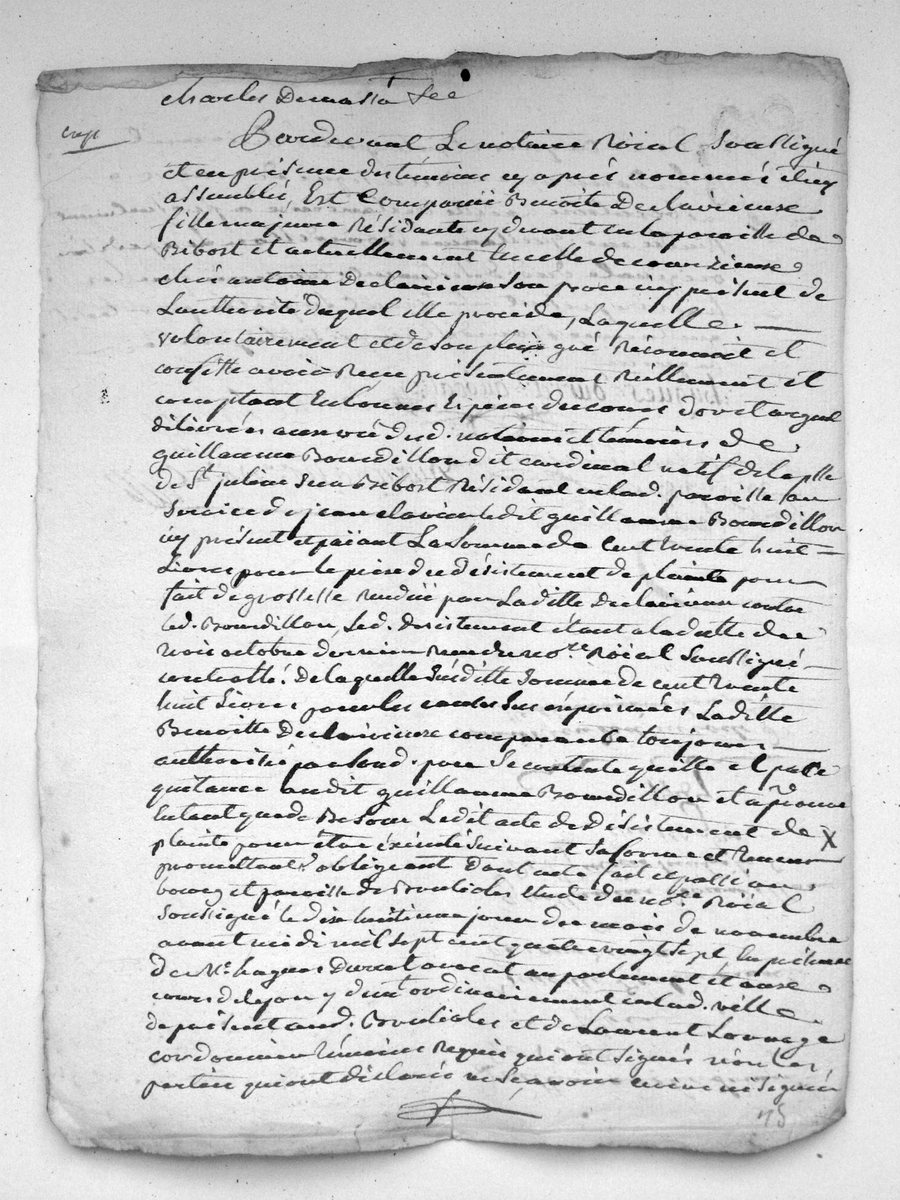 charles Demassa
exp
Pardevant Le notaire Roial Soussigné
et en présence des témoins cy après nommés et icy
assemblés, Est Comparüe Benoite Declavieuse
fille majeure Résidante cy devant en la paroisse de
Bibost et actuellement En celle de courzieux
chés antoine Declavieuse Son père icy présent de
Lauthorité duquel elle procède, Laquelle
volontairement et de Son plein gré Reconnoit et
confesse avoir Receu présentement Réellement et
comptant En bonnes Espèces du cours d'or et argent
délivrées au veü dud. notaire et témoins de
guillaume Bourdillon dit cardinal natif de la psse
de St julien Sur Bibost Résidant en lad. paroisse au
Service de jean ledit guillaume Bourdillon
icy présent et païant La Somme de Cent trente huit
Livres pour le prix du désistement de plainte pour
fait de grossesse rendüe par Laditte Declavieuse contre
led. Bourdillon, Led. désistement étant à la datte du
trois octobre dernier Reçu du nore Roial Soussigné
controllé. De laquelle Susditte Somme de cent trente
huit Livres pour les causes Sus exprimées Laditte
Benoitte Declavieuse comparante toujours
authorisée par Sond. père Se contente quitte et passe
quitance audit guillaume Bourdillon et aprouve
Entant que de Besoin Ledit acte de Désistement de X
plainte pour être éxécuté Suivant Sa forme et teneur
promettant obligeant Dont acte fait et passé au
bourg et paroisse de Brulioles Etude du nore Roial
Soussigné le dix huitième jour du mois de novembre
avant midi mil Sept cent quatre vingt Sept En présence
de Me hugues Durret avocat en parlement et aux
cours de Lyon y demt ordinairement en lad. ville
de présent aud. Brulioles et de Laurent
cordonnier témoins Requis qui ont Signés non Les
parties qui ont déclaré ne Sçavoir écrire ni Signer